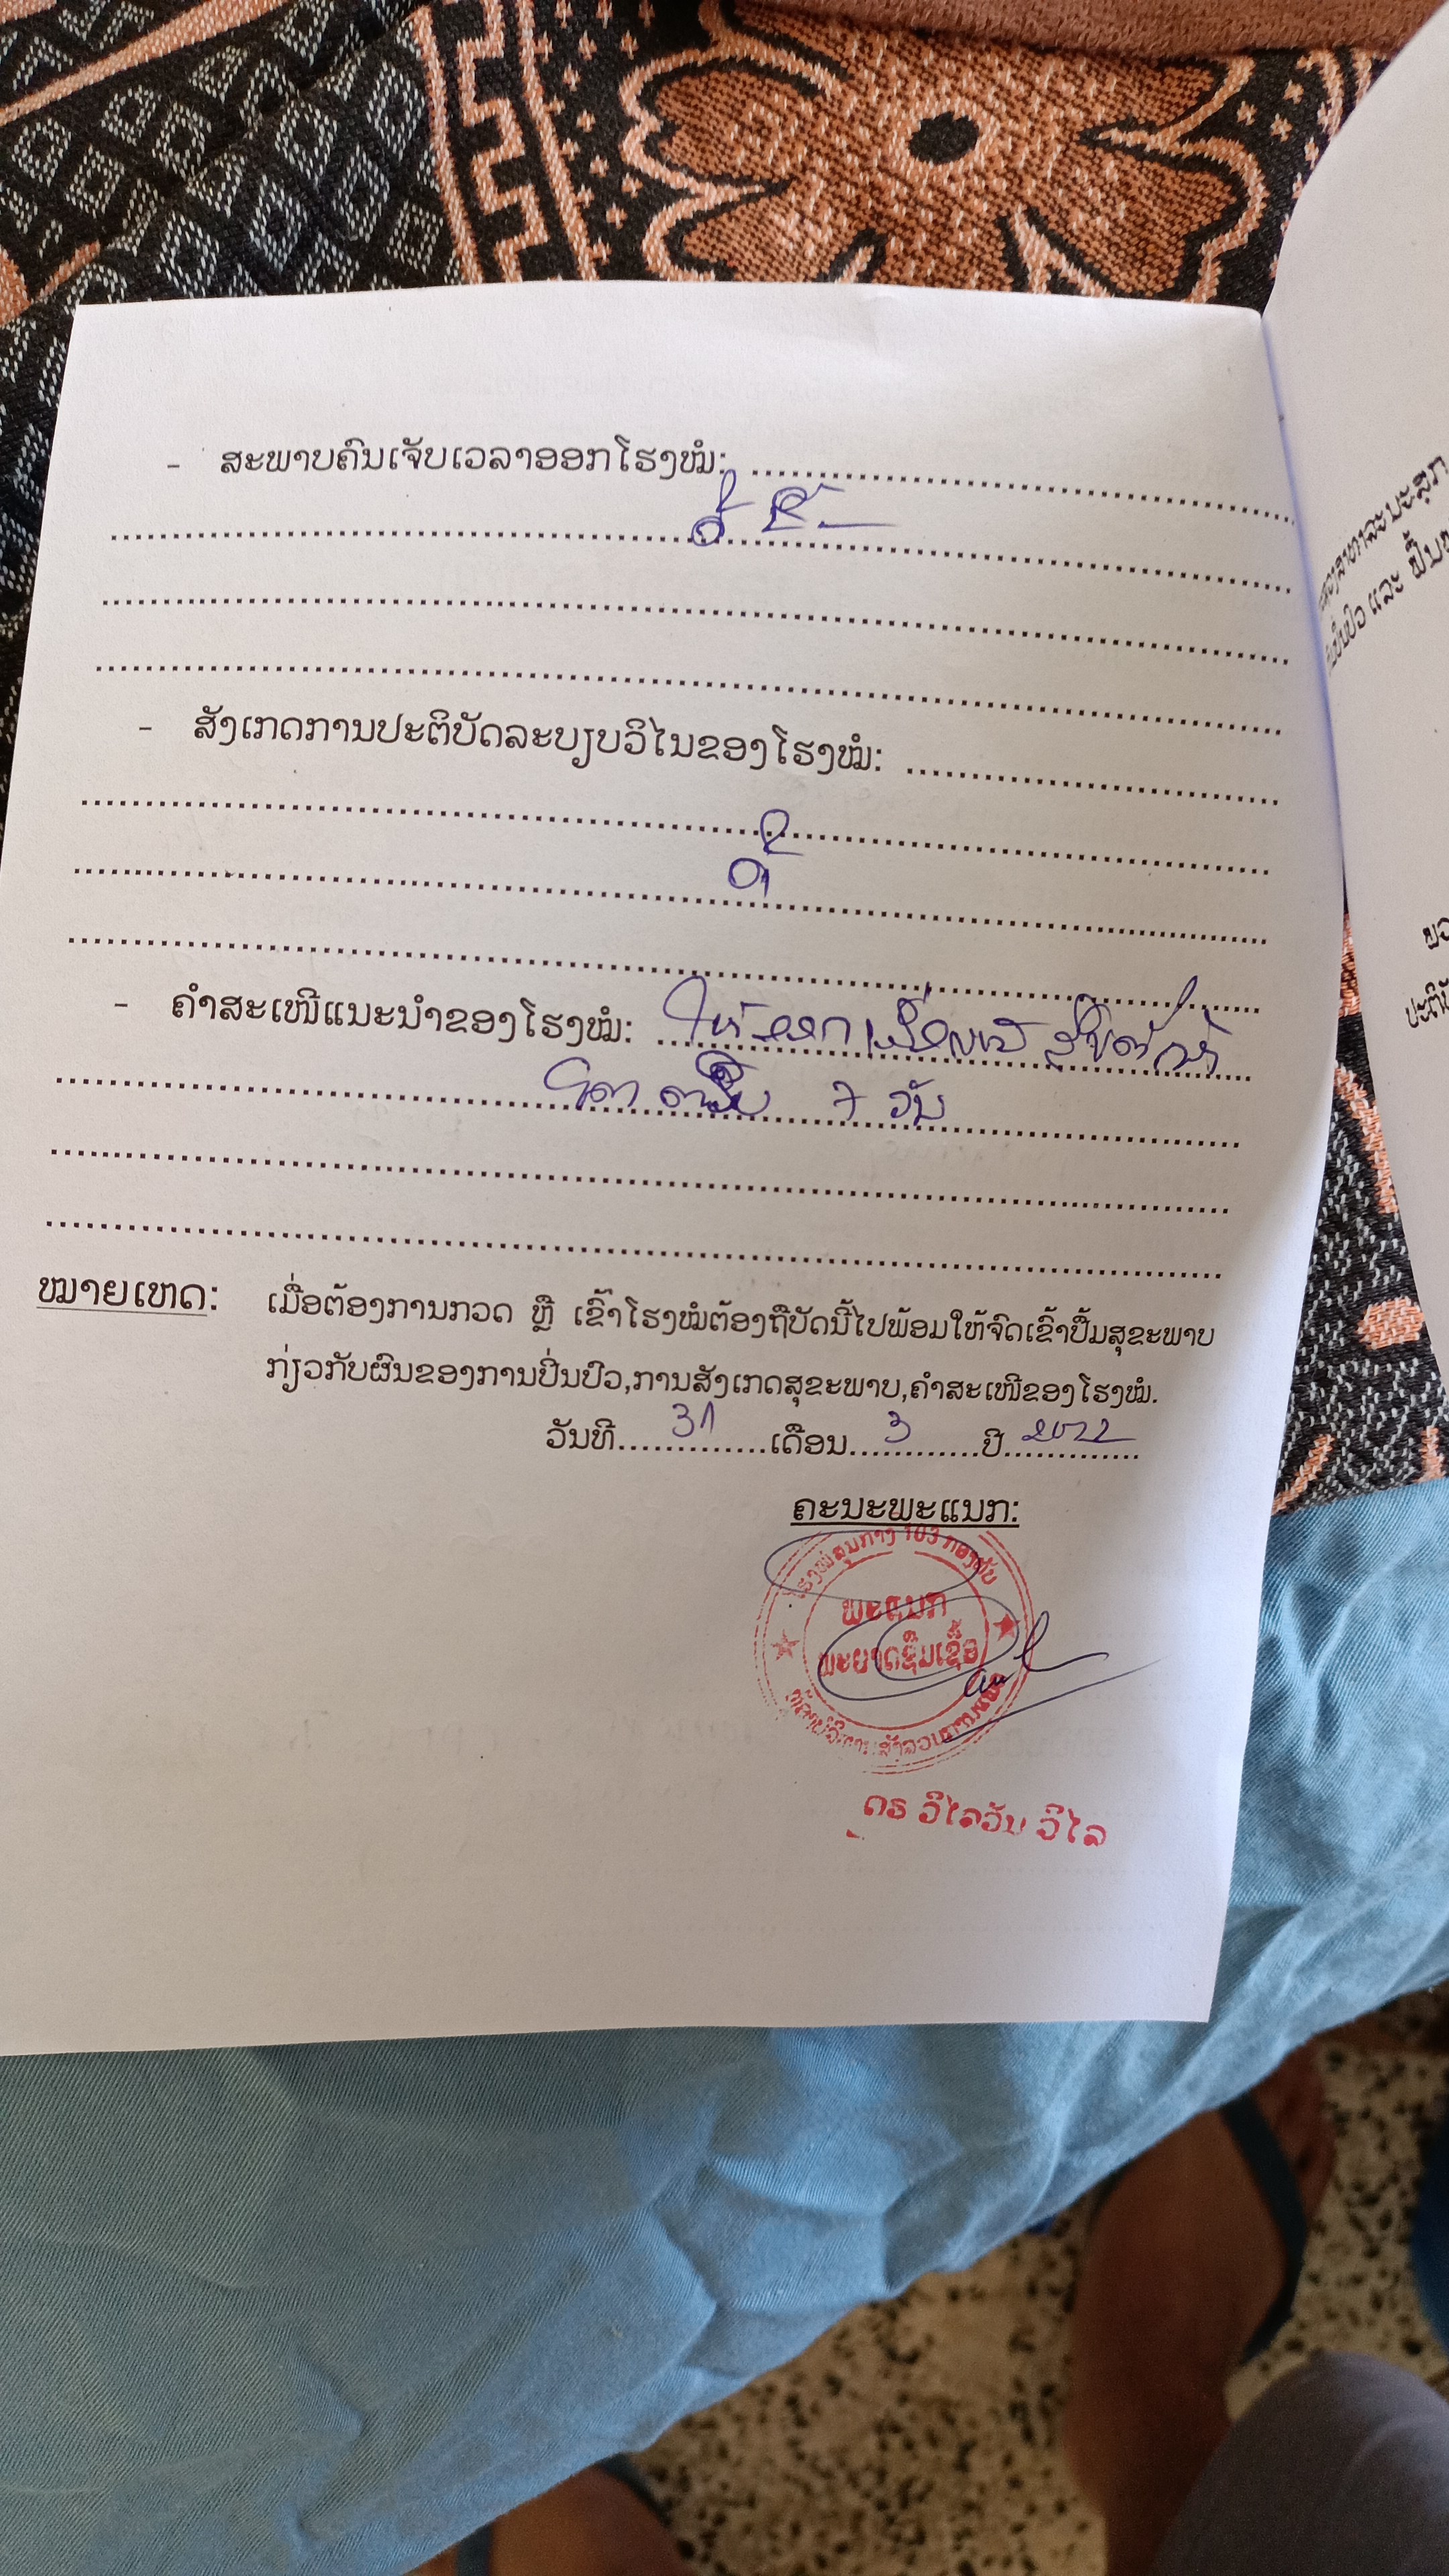 - ສະພາບຄົນເຈັບເວລາອອກໂຮງໝໍ:
- ສັງເກດການປະຕິບັດລະບຽບວິໄນຂອງໂຮງໝໍ:
ດີ
- ຄຳສະເໜີແນະນຳຂອງໂຮງໝໍ: ໃຫ້
7 ວັນ
ໝາຍເຫດ: ເມື່ອຕ້ອງການກວດ ຫຼື ເຂົ້າໂຮງໝໍຕ້ອງຖືບັດນີ້ໄປພ້ອມໃຫ້ຈົດເຂົ້າປື້ມສຸຂະພາບ
ກ່ຽວກັບຜົນຂອງການປິ່ນປົວ,ການສັງເກດສຸຂະພາບ,ຄຳສະເໜີຂອງໂຮງໝໍ.
ວັນທີ 31 ເດືອນ 3 ປີ 2022
ຄະນະພະແນກ:
ໂຮງໝໍສູນກາງ 103 ກອງທັບ
ພະແນກ
ພະຍາດຊຶມເຊື້ອ
ດຣ ວິໄລວັນ ວິໄລ
ປິ່ນປົວ ແລະ ຟື້ນ